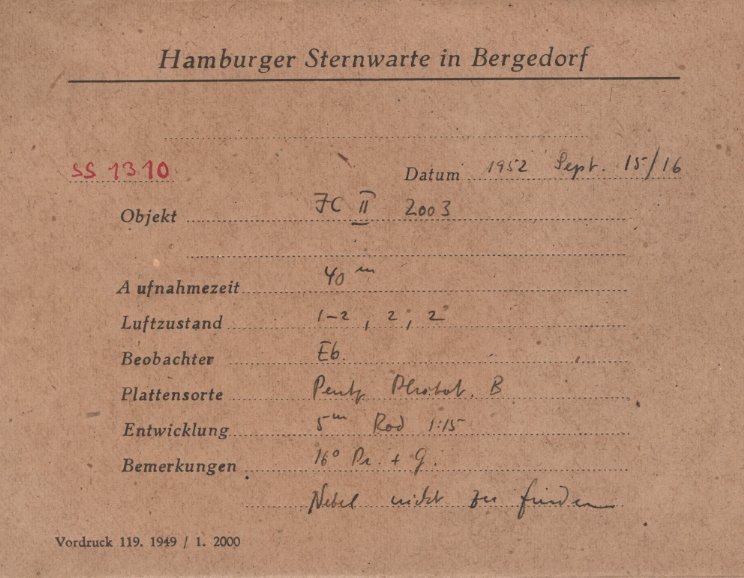 Hamburger Sternwarte in Bergedorf
SS 1310
Datum 1952 Sept. 15/16
Objekt JC II 2003
Aufnahmezeit 40 m
Luftzustand 1-2, 2, 2
Beobachter Eb.
Plattensorte Photot. B
Entwicklung 5m Rod 1:15
Bemerkungen 16° + G.
Nebel nicht zu finden
Vordruck 119. 1949 / 1. 2000